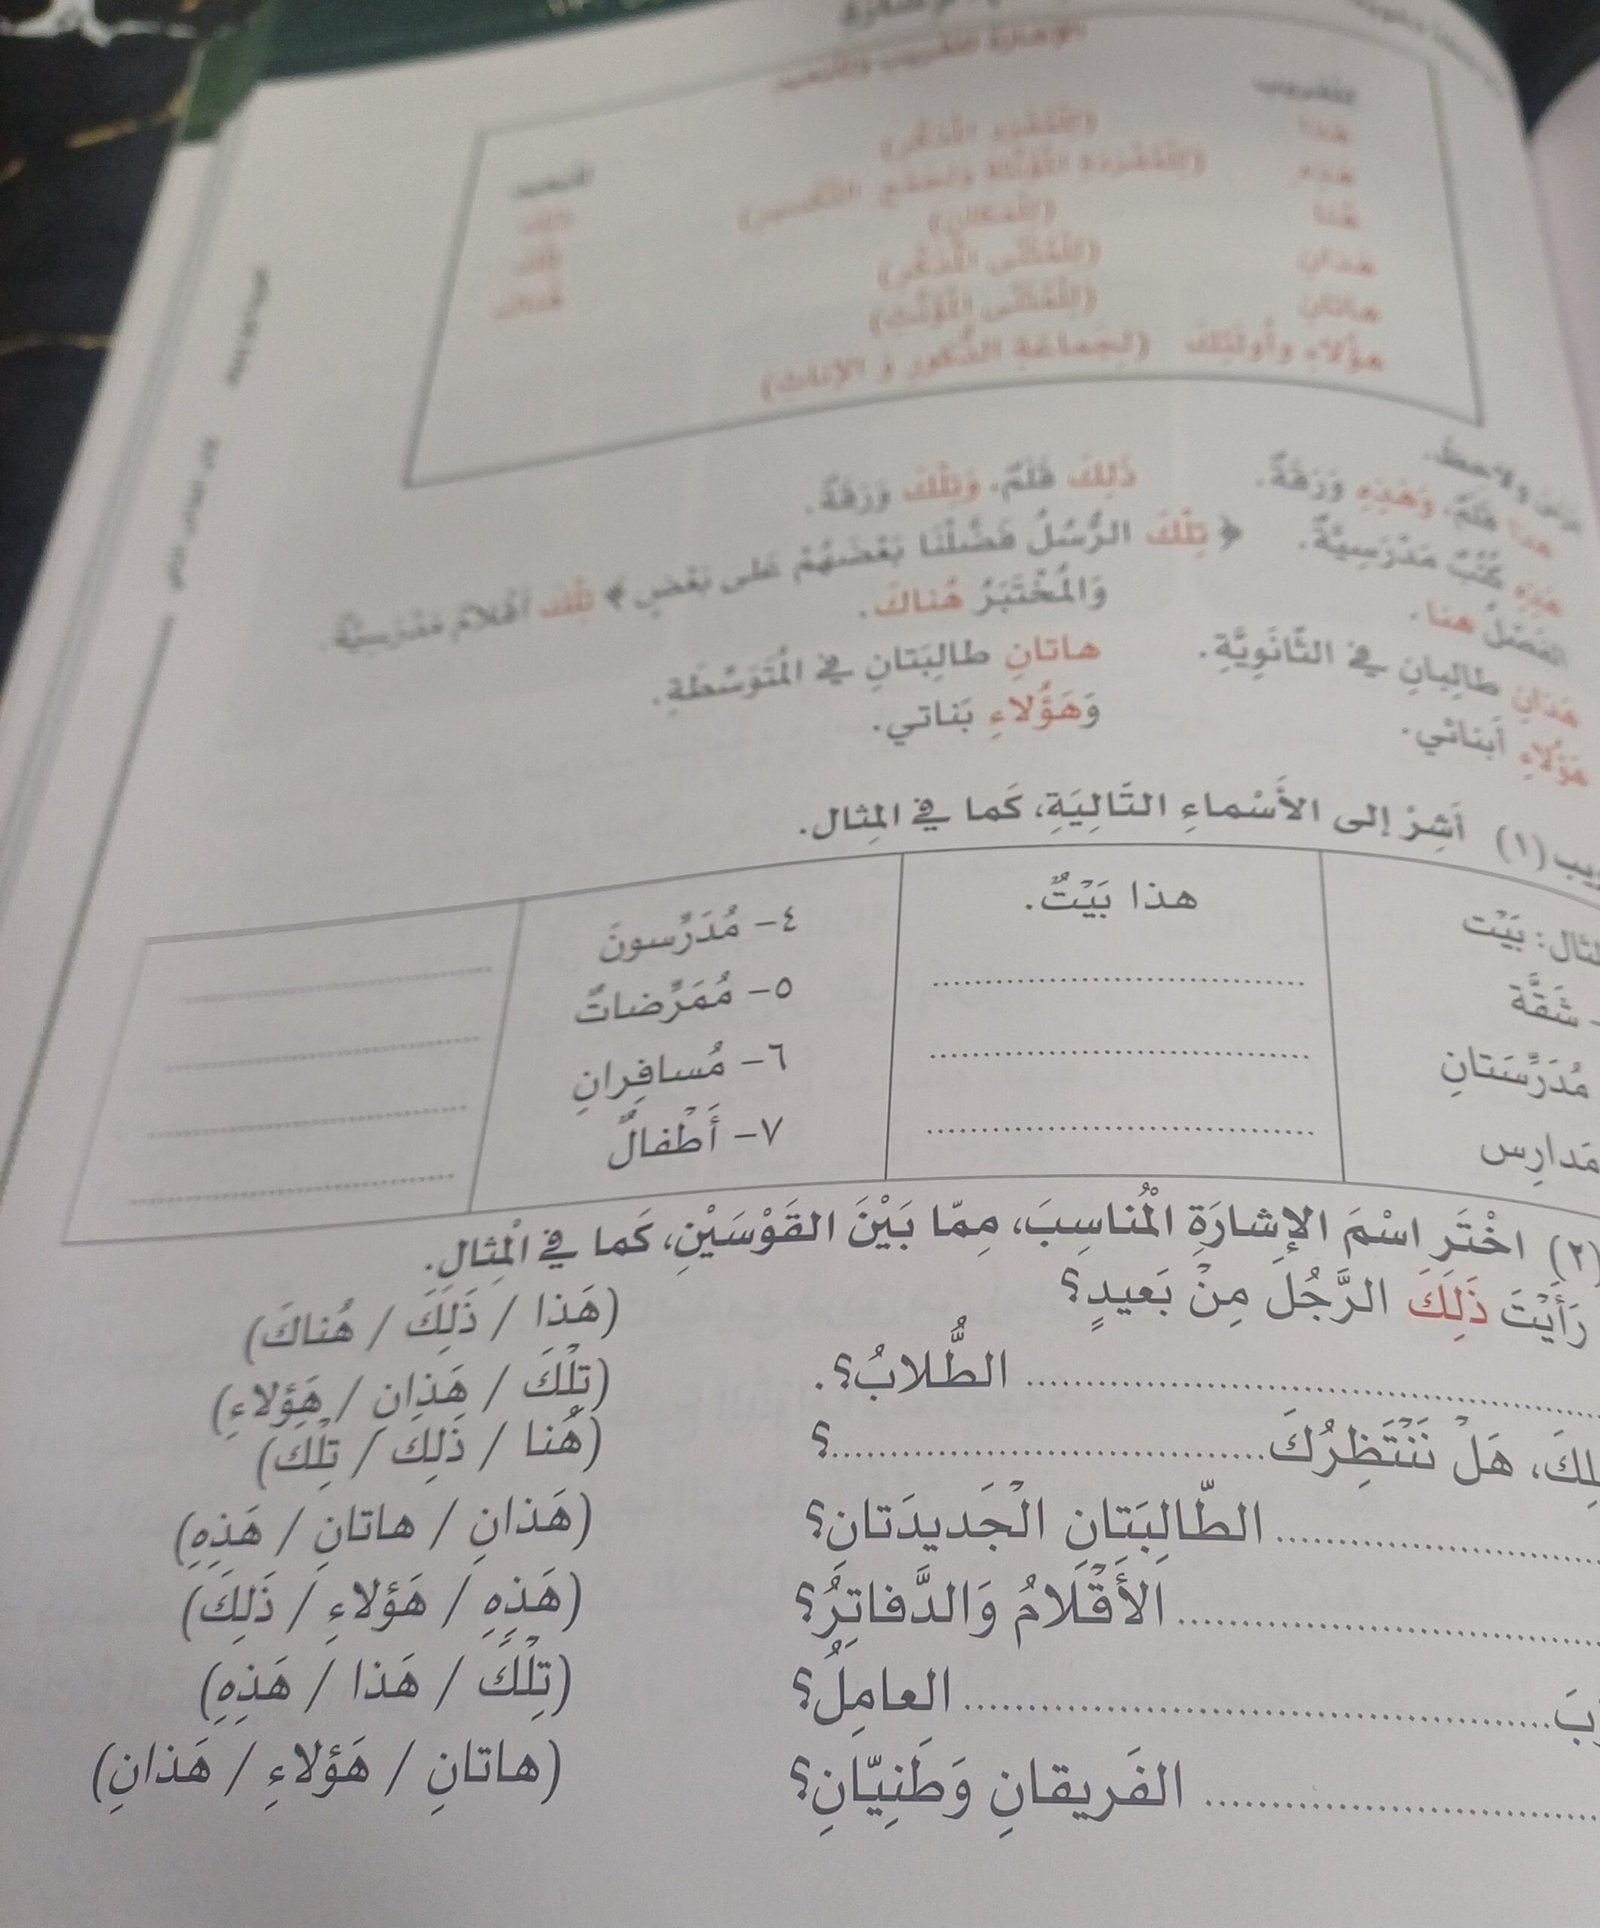 الإشارة للقريب والبعيد
للقريب
للبعيد
هذا (للمُفْرَدِ المُذَكَّر) ذلك
هذه (للمُفْرَدَةِ المُؤَنَّثَةِ وَلِجَمْعِ التَّكْسيرِ) تلك
هُنا (للمكان) هُناك
هذان (للمُثَنّى المُذَكَّرِ)
هاتانِ (للمُثَنّى المُؤَنَّثِ)
هؤُلاءِ وأُولَئِكَ (لِجَماعَةِ الذُّكورِ وَ الإناثِ)
ولاحظْ.
هذا قَلَمٌ، وَهَذِهِ وَرَقَةٌ. ذَلِكَ قَلَمٌ، وَتِلْكَ وَرَقَةٌ.
هَذِهِ كُتُبٌ مَدْرَسِيَّةٌ. ﴿ تِلْكَ الرُّسُلُ فَضَّلْنَا بَعْضَهُمْ عَلى بَعْضٍ ﴾ تِلْكَ أَقْلامٌ مَدْرَسِيَّةٌ.
الفَصْلُ هنا. وَالمُخْتَبَرُ هُناكَ.
هَذانِ طالِبانِ في الثّانَوِيَّةِ. هاتانِ طالِبَتانِ في المُتَوَسِّطَةِ.
هَؤُلاءِ أَبنائي. وَهَؤُلاءِ بَناتي.
(١) أَشِرْ إلى الأَسْماءِ التّالِيَةِ، كَما في المِثال.
بَيْت هذا بَيْتٌ. ٤- مُدَرِّسونَ
- شَقَّة ٥- مُمَرِّضاتٌ
مُدَرِّسَتانِ ٦- مُسافِرانِ
مَدارِس ٧- أَطْفالٌ
(٢) اخْتَرِ اسْمَ الإِشارَةِ الْمُناسِبَ، مِمّا بَيْنَ القَوْسَيْنِ، كَما في الْمِثالِ.
رَأَيْتَ ذَلِكَ الرَّجُلَ مِنْ بَعيدٍ؟ (هَذا / ذَلِكَ / هُناكَ)
الطُّلابُ؟. (تِلْكَ / هَذانِ / هَؤلاءِ)
هَلْ نَنْتَظِرُكَ ؟ (هُنا / ذَلِكَ / تِلْكَ)
الطّالِبَتانِ الْجَديدَتانِ؟ (هَذانِ / هاتانِ / هَذِهِ)
الأَقْلامُ وَالدَّفاتِرُ؟ (هَذِهِ / هَؤلاءِ / ذَلِكَ)
العامِلُ؟ (تِلْكَ / هَذا / هَذِهِ)
الفَريقانِ وَطَنِيّانِ؟ (هاتانِ / هَؤلاءِ / هَذانِ)